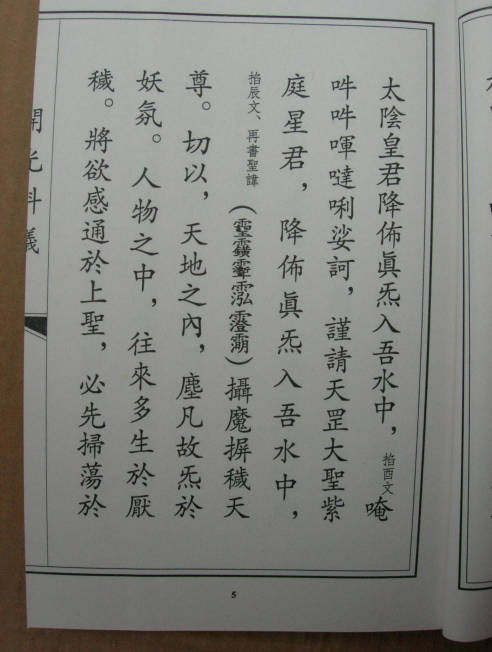 太陰皇君降佈眞炁入吾水中，掐酉文 唵
吽吽喗噠唎娑訶，謹請天罡大聖紫
庭星君，降佈眞炁入吾水中，
掐辰文、再書聖諱（）攝魔摒穢天
尊。切以，天地之內，塵凡故炁於
妖氛。人物之中，往來多生於厭
穢。將欲感通於上聖，必先掃蕩於
開光科儀
5